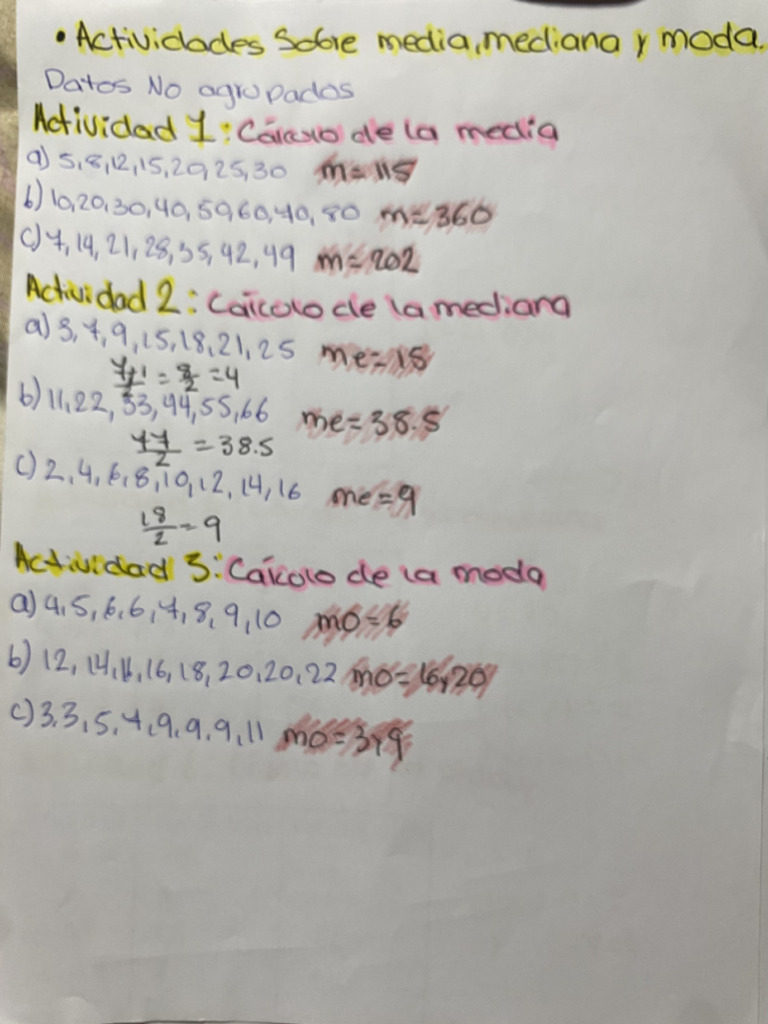 • Actividades Sobre media, mediana y moda.
Datos No agrupados
Actividad 1: Cálculo de la media
a) 5, 8, 12, 15, 20, 25, 30 m = 115
b) 10, 20, 30, 40, 50, 60, 70, 80 m = 360
c) 7, 14, 21, 28, 35, 42, 49 m = 202
Actividad 2: Cálculo de la mediana
a) 3, 7, 9, 15, 18, 21, 25 me = 15
7+1/2 = 8/2 = 4
b) 11, 22, 33, 44, 55, 66 me = 38.5
77/2 = 38.5
c) 2, 4, 6, 8, 10, 12, 14, 16 me = 9
18/2 = 9
Actividad 3: Cálculo de la moda
a) 4, 5, 6, 6, 7, 8, 9, 10 mo = 6
b) 12, 14, 16, 16, 18, 20, 20, 22 mo = 16 y 20
c) 3, 3, 5, 7, 9, 9, 9, 11 mo = 3 y 9